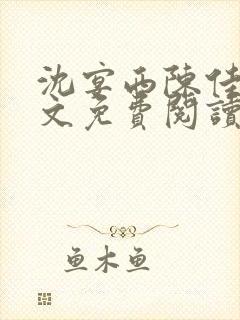 沈宴西陳佳
文免費閱讀
鱼木鱼